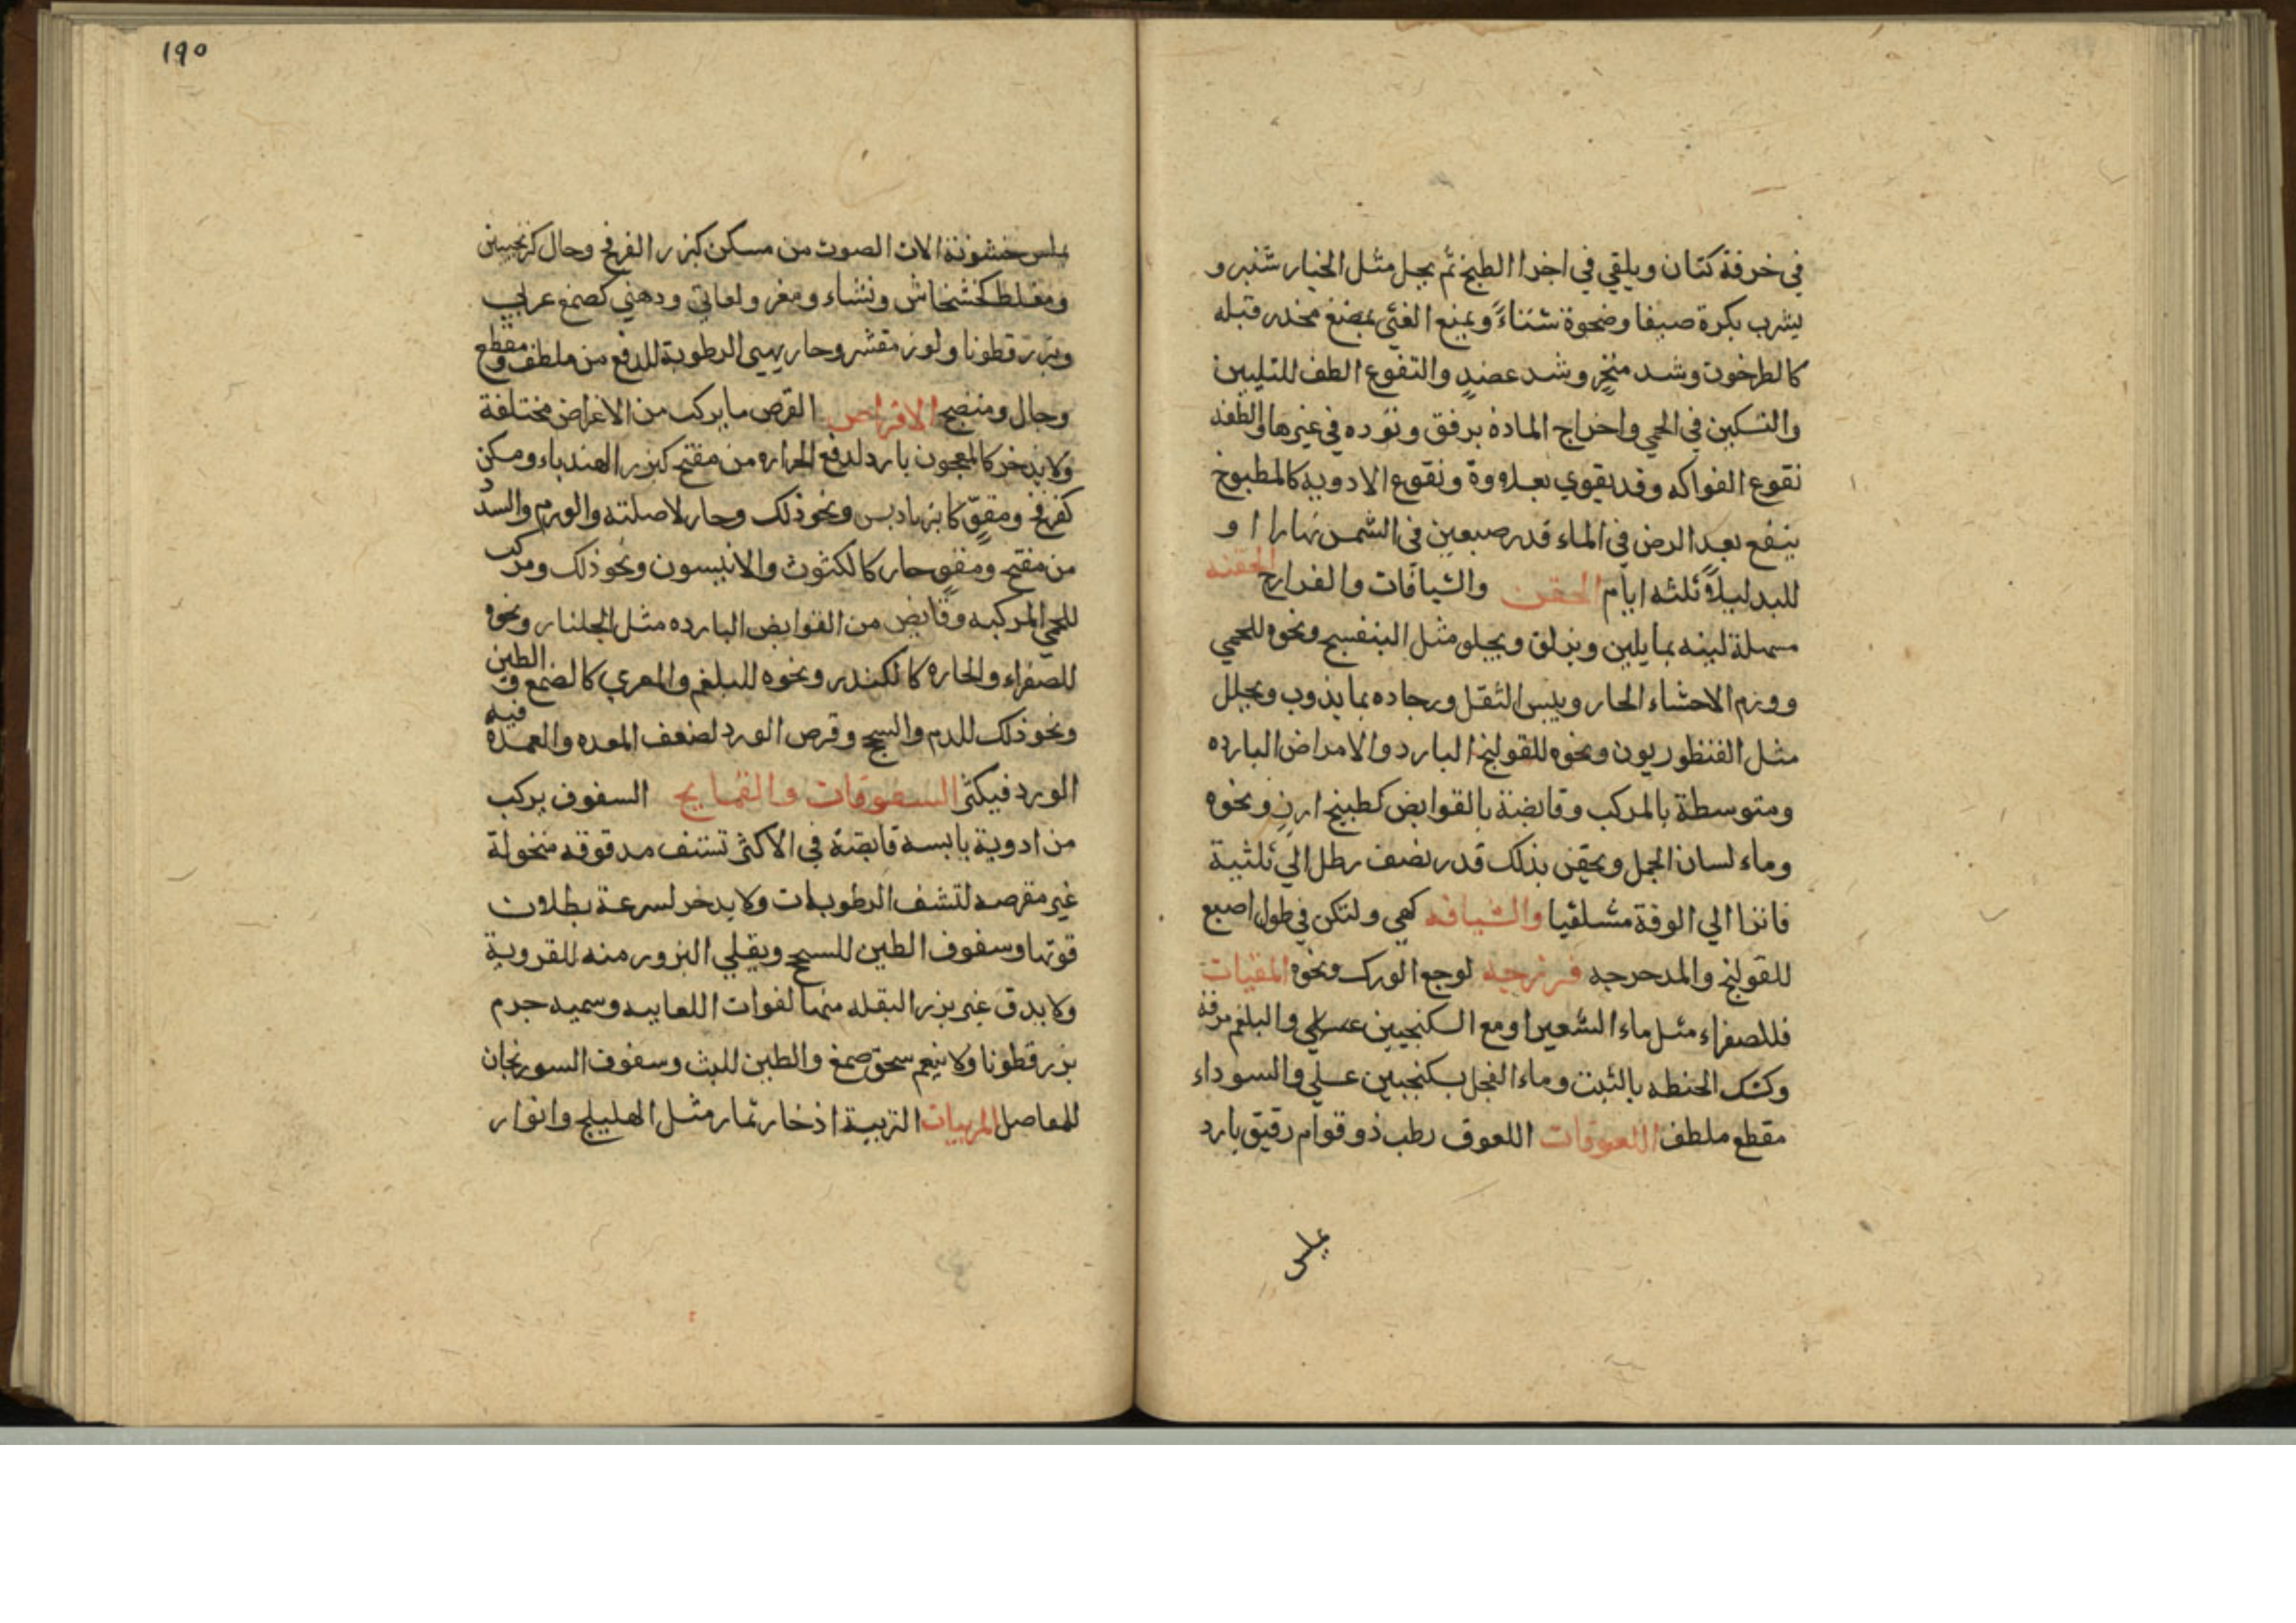 في خرقة كتان ويلقي في اخرا الطبخ ثم يحل مثل الخيار شنبر و
يشرب بكرة صيفا وضحوة شتاءً ويمنع الغثي بمضغ مخدر قبله
كالطرخون وشد منخرٍ وشد عضدٍ والنقوع الطف للتليين
والتسكين في الحمي واخراج المادة برفق وتوده في غيرها والطفه
نقوع الفواكه وقد يقوي بعلاووة ونقوع الادوية كالمطبوخ
ينقع بعد الرض في الماء قدر صبعين في الشمس نهارا او
للبد ليلاً ثلثه ايام الحقن والشيافات والفرازج الحقنه
مسهلة لينه بما يلين ويزلق ويجلو مثل البنفسج ونحوه للحمي
وورم الاحشاء الحار ويبس الثقل وحاده بما يذوب ويحلل
مثل القنطوريون ونحوه للقولنج البارد والامراض البارده
ومتوسطة بالمركب وقابضة بالقوابض كطبيخ ارز ونحوه
وماء لسان الحمل ويحقن بذلك قدر نصف رطل الي ثلثية
فاترا الي الوفة مستلقيا والشيافه كهي ولتكن في طول اصبع
للقولنج والمدحرجه فرزجه لوجع الورك ونحوه المقيات
فللصفراء مثل ماء الشعير او مع السكنجبين عسلي والبلغم مرقة
وكشك الحنطه بالشبت وماء الفجل بسكنجبين عسلي والسوداء
مقطع ملطف اللعوقات اللعوق رطب ذو قوام رقيق بارد
يملس
١٩٥
يملس خشونة الات الصوت من مسكن كبزر الفرفخ وحال كترنجبين
ومغلظ كخشخاش ونشاء ومغر ولعابي ودهني كصمغ عربي
وبزر قطونا ولوز مقشر وحار يهيي الرطوبة للدفع من ملطف ومقطع
وحال ومنضج الاقراص القرص ما يركب من الاغراض مختلفة
ولا يدخر كالمعجون بارد لدفع الحراره من مفتح كبزر الهندباء ومسكن
كفرفخ ومقوٍّ كانبرباديس ونحو ذلك وحار لاصلته والورم والسدد
من مفتح ومقوٍ حار كالكشوث والانيسون ونحو ذلك ومركب
للحمي المركبه وقابض من القوابض البارده مثل الجلنار ونحوه
للصفراء والحاره كالكندر ونحوه للبلغم والمغري كالصمغ والطين
ونحو ذلك للدم والسحج وقرص الورد لضعف المعده والعمدة فيه
الورد فيكثر السفوفات والقمايح السفوف يركب
من ادوية يابسه قابضة في الاكثر تستف مدقوقه منخولة
غير مقرصه لتنشف الرطوبات ولا يدخر لسرعة بطلان
قوتها وسفوف الطين للسحج ويقلي البزور منه للقروية
ولا يدق غير بزر البقله منها لفوات اللعابيه وسميه جرم
بزر قطونا ولا ينعم سحق صمغ والطين للبث وسفوف السورنجان
للمفاصل المربيات التربية اذخار ثمار مثل الهليلج وانوار